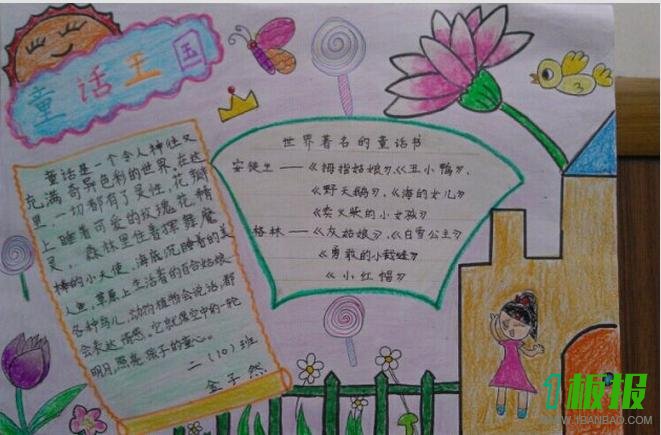 童话王国
童话是一个令人神往又
充满奇异色彩的世界。在这
里，一切都有了灵性，花瓣
上睡着可爱的玫瑰花精
灵，森林里住着挥舞魔
棒的小天使，海底沉睡着的美
人鱼，草原上生活着的百合姑娘……
各种鸟儿，动物植物会说话，都
会表达情感。它就像空中的一轮
明月，照亮孩子的童心。
二（10）班
金子然
世界著名的童话书
安徒生——《拇指姑娘》、《丑小鸭》、
《野天鹅》、《海的女儿》
《卖火柴的小女孩》
格林——《灰姑娘》、《白雪公主》
《勇敢的小裁缝》
《小红帽》
1板报
WWW.1BANBAO.COM